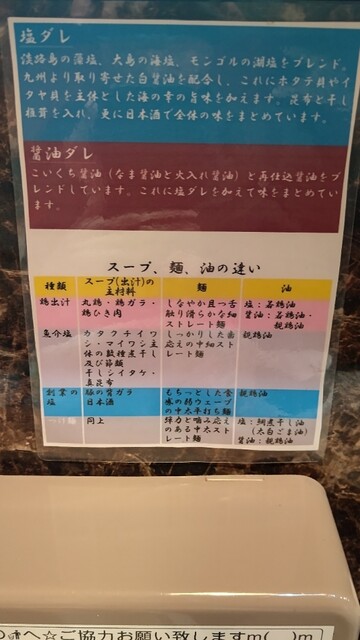 塩ダレ
淡路島の藻塩、大島の海塩、モンゴルの湖塩をブレンド。
九州より取り寄せた白醤油を配合し、これにホタテ貝やイ
タヤ貝を主体とした海の幸の旨味を加えます。昆布と干し
椎茸を入れ、更に日本酒で全体の味をまとめています。
醤油ダレ
こいくち醤油(なま醤油と火入れ醤油)と再仕込醤油をブ
レンドしています。これに塩ダレを加えて味をまとめてい
ます。
スープ、麺、油の違い
種類 スープ(出汁)の主材料 麺 油
鶏出汁 丸鶏・鶏ガラ・鶏ひき肉 しなやか且つ舌触り滑らかな細ストレート麺 塩:若鶏油 醤油:若鶏油・親鶏油
魚介塩 カタクチイワシ・マイワシ主体の数種煮干し及び節類 干しシイタケ・真昆布 しっかりした歯応えの中細ストレート麺 親鶏油
創業の塩 豚の背ガラ 日本酒 もちっとした食感の弱ウェーブの中太平打ち麺 親鶏油
つけ麺 同上 弾力と噛み応えのある中太ストレート麺 塩:鯛煮干し油(太白ごま油) 醤油:親鶏油
へ☆ご協力お願い致しますm(__)m